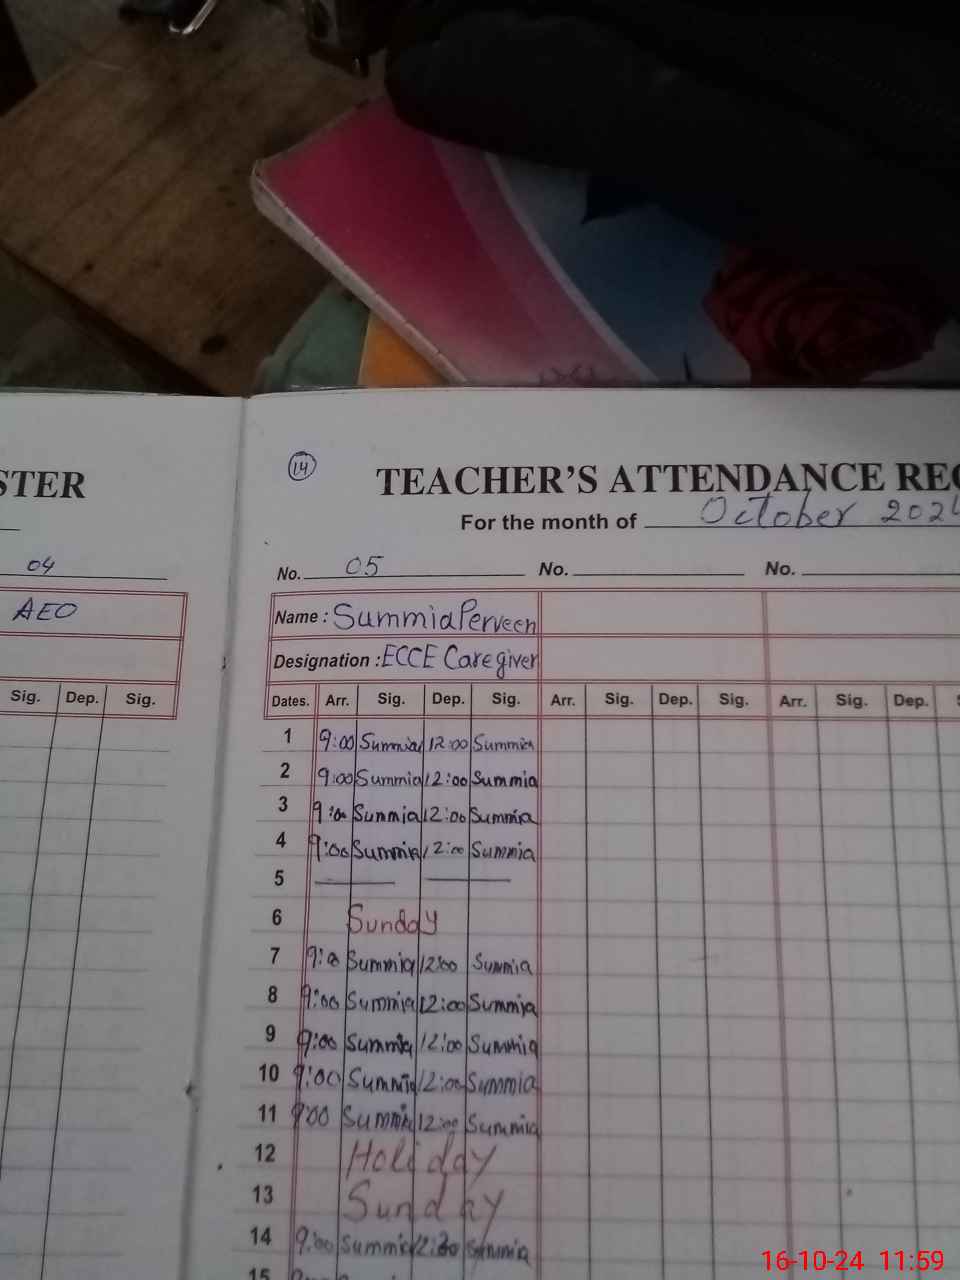 STER
04
AEO
Sig. Dep. Sig.
14
TEACHER'S ATTENDANCE REG
For the month of October 2024
No. 05 No. No.
Name : Summia Perveen
Designation : ECCE Caregiver
Dates. Arr. Sig. Dep. Sig. Arr. Sig. Dep. Sig. Arr. Sig. Dep. S
1 9:00 Summia 12:00 Summia
2 9:00 Summia 12:00 Summia
3 9:00 Summia 12:00 Summia
4 9:00 Summia 12:00 Summia
5
6 Sunday
7 9:00 Summia 12:00 Summia
8 9:00 Summia 12:00 Summia
9 9:00 Summia 12:00 Summia
10 9:00 Summia 12:00 Summia
11 9:00 Summia 12:00 Summia
12 Holiday
13 Sunday
14 9:00 Summia 12:30 Summia
15
16-10-24 11:59